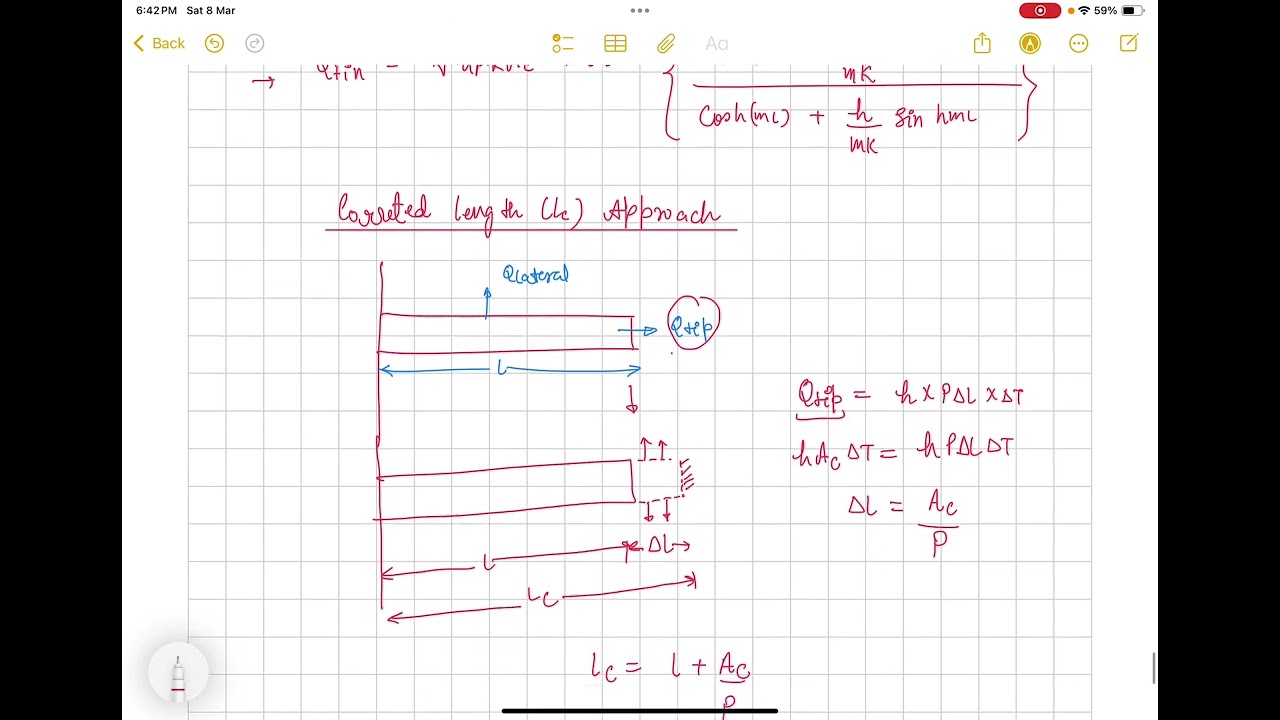 6:42 PM Sat 8 Mar
59%
Back
Aa
mK
Cosh(mL) + h/mK Sin hmL
Correted length (Lc) Approach
Qlateral
L
Qtip = h x P ΔL x ΔT
hAc ΔT = h P ΔL ΔT
ΔL = Ac/P
ΔL
L
Lc
Lc = L + Ac/P